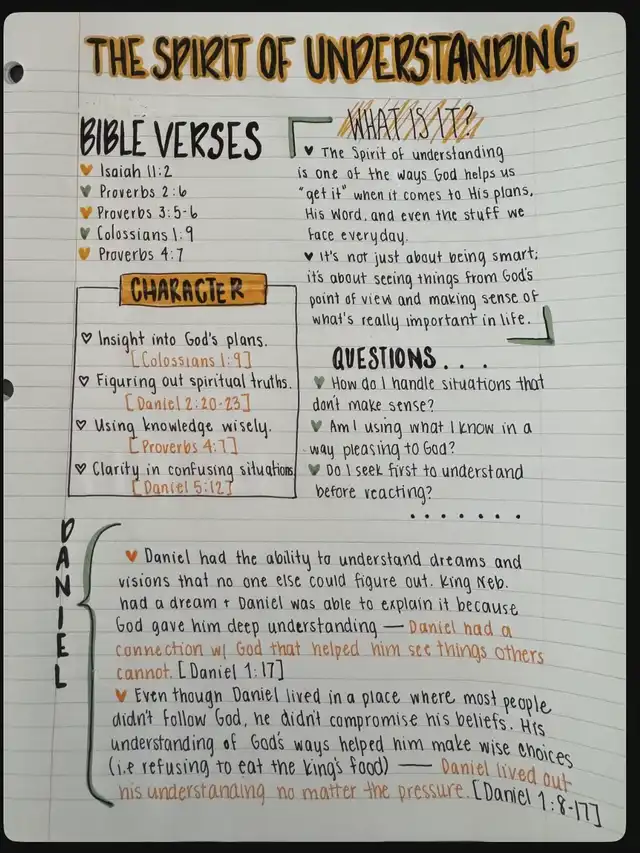 THE SPIRIT OF UNDERSTANDING
BIBLE VERSES
Isaiah 11:2
Proverbs 2:6
Proverbs 3:5-6
Colossians 1:9
Proverbs 4:7
WHAT IS IT?
The Spirit of understanding
is one of the ways God helps us
"get it" when it comes to His plans,
His Word, and even the stuff we
face everyday.
It's not just about being smart;
it's about seeing things from God's
point of view and making sense of
what's really important in life.
CHARACTER
Insight into God's plans.
[Colossians 1:9]
Figuring out spiritual truths.
[Daniel 2:20-23]
Using knowledge wisely.
[Proverbs 4:7]
Clarity in confusing situations
[Daniel 5:12]
QUESTIONS...
How do I handle situations that
don't make sense?
Am I using what I know in a
way pleasing to God?
Do I seek first to understand
before reacting?
DANIEL
Daniel had the ability to understand dreams and
visions that no one else could figure out. King Neb.
had a dream + Daniel was able to explain it because
God gave him deep understanding — Daniel had a
connection w/ God that helped him see things others
cannot. [Daniel 1:17]
Even though Daniel lived in a place where most people
didn't follow God, he didn't compromise his beliefs. His
understanding of God's ways helped him make wise choices
(i.e refusing to eat the king's food) — Daniel lived out
his understanding no matter the pressure. [Daniel 1:8-17]